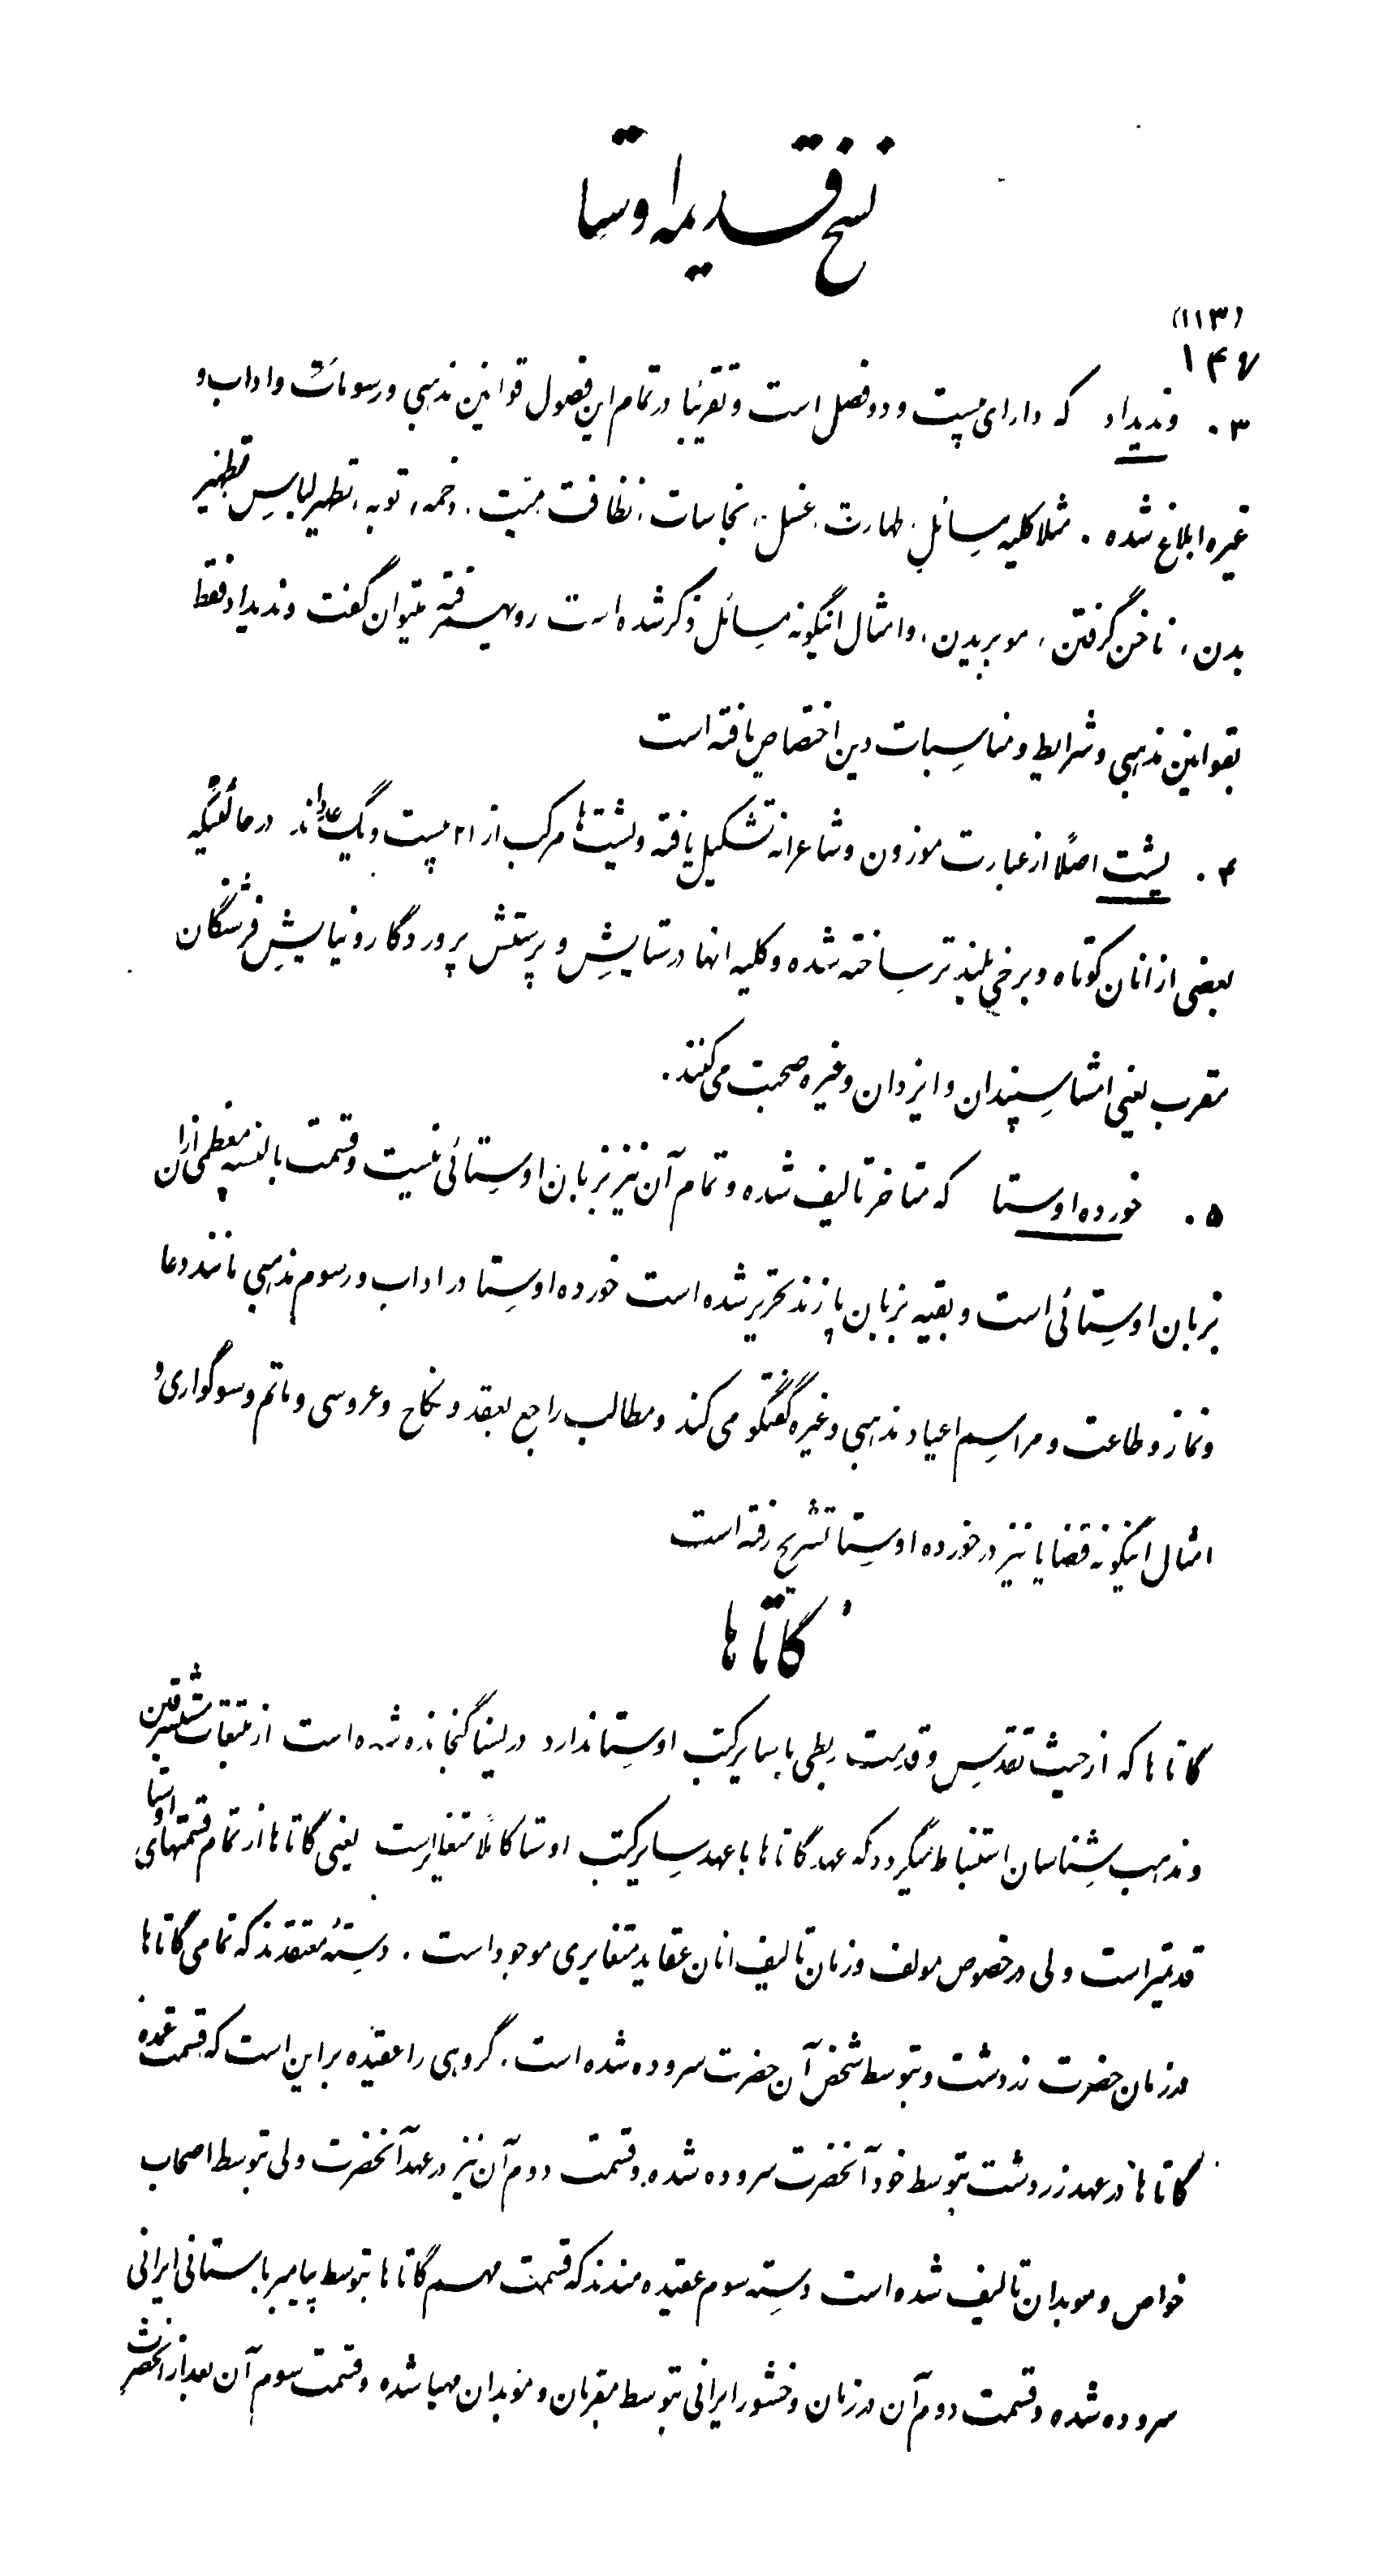 نسخ قدیمه اوستا
(۱۱۳)
۱۴۶
۳. وندیداد که دارای بیست و دو فصل است و تقریباً در تمام این فصول قوانین مذهبی و رسومات و اداب و
غیره ابلاغ شده . مثلا کلیه مسائل طهارت ، غسل ، نجاسات ، نظافت میت ، دخمه ، توبه ، تطهیر لباس تطهیر
بدن ، ناخن گرفتن ، مو بریدن ، و امثال اینگونه مسائل ذکر شده است رویهمرفته میتوان گفت وندیداد فقط
بقوانین مذهبی و شرایط و مناسبات دین اختصاص یافته است
۴. یشت اصلاً از عبارت موزون و شاعرانه تشکیل یافته و یشت‌ها مرکب از ۲۱ بیست و یک اند در حالتیکه
بعضی از انان کوتاه و برخی بلندتر ساخته شده و کلیه انها در ستایش و پرستش پروردگار و نیایش فرشتگان
مقرب یعنی امشاسپندان و ایزدان و غیره صحبت می کنند .
۵. خورده اوستا که متاخر تالیف شده و تمام آن نیز بزبان اوستائی نیست و قسمت بالنسبه معظمی ازان
بزبان اوستائی است و بقیه بزبان پازند تحریر شده است خورده اوستا در اداب و رسوم مذهبی مانند دعا
و نماز و طاعت و مراسم اعیاد مذهبی و غیره گفتگو می کند و مطالب راجع بعقد و نکاح و عروسی و ماتم و سوگواری و
امثال اینگونه قضایا نیز در خورده اوستا تشریح رفته است
گاتا ها
گاتا ها که از حیث تقدیس و قدمت ربطی با سایر کتب اوستا ندارد در یسنا گنجانده شده است از تتبعات مستشرقین
و مذهب شناسان استنباط میگردد که عهد گاتا ها با عهد سایر کتب اوستا کاملاً متغایر است یعنی گاتا ها از تمام قسمتهای اوستا
قدیمتر است ولی در خصوص مولف و زمان تالیف انان عقاید متغایری موجود است . دستهٔ معتقدند که تمامی گاتا ها
در زمان حضرت زردشت و بتوسط شخص آن حضرت سروده شده است . گروهی را عقیده بر این است که قسمت عمدهٔ
گاتا ها در عهد زردشت بتوسط خود آنحضرت سروده شده و قسمت دوم آن نیز در عهد آنحضرت ولی بتوسط اصحاب
خواص و موبدان تالیف شده است دسته سوم عقیده مندند که قسمت مهم گاتا ها بتوسط پیامبر باستانی ایرانی
سروده شده و قسمت دوم آن در زمان وخشور ایرانی بتوسط مقربان و موبدان مهیا شده و قسمت سوم آن بعد از آنحضرت